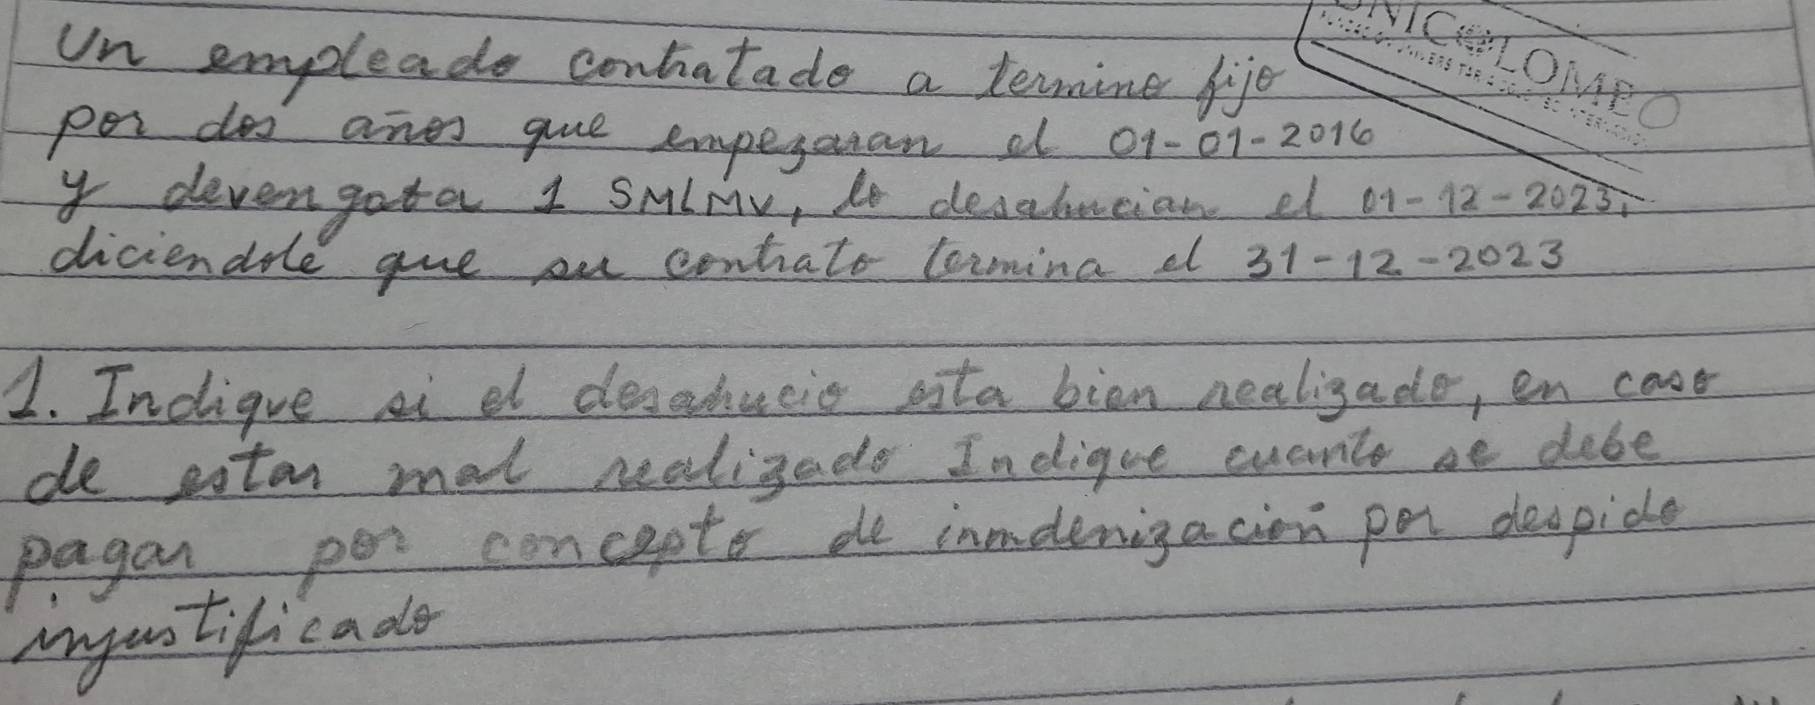 UNIC@LOMBO
Un empleado contratado a termino fijo
por dos años que empezaran el 01-01-2016
y devengata 1 SMLMV, lo desahucian el 01-12-2023,
diciendole que su contrato termina el 31-12-2023
1. Indique si el desahucio esta bien realizado, en caso
de estar mal realizado Indique cuanto se debe
pagar por concepto de inmdenización por despido
injustificado